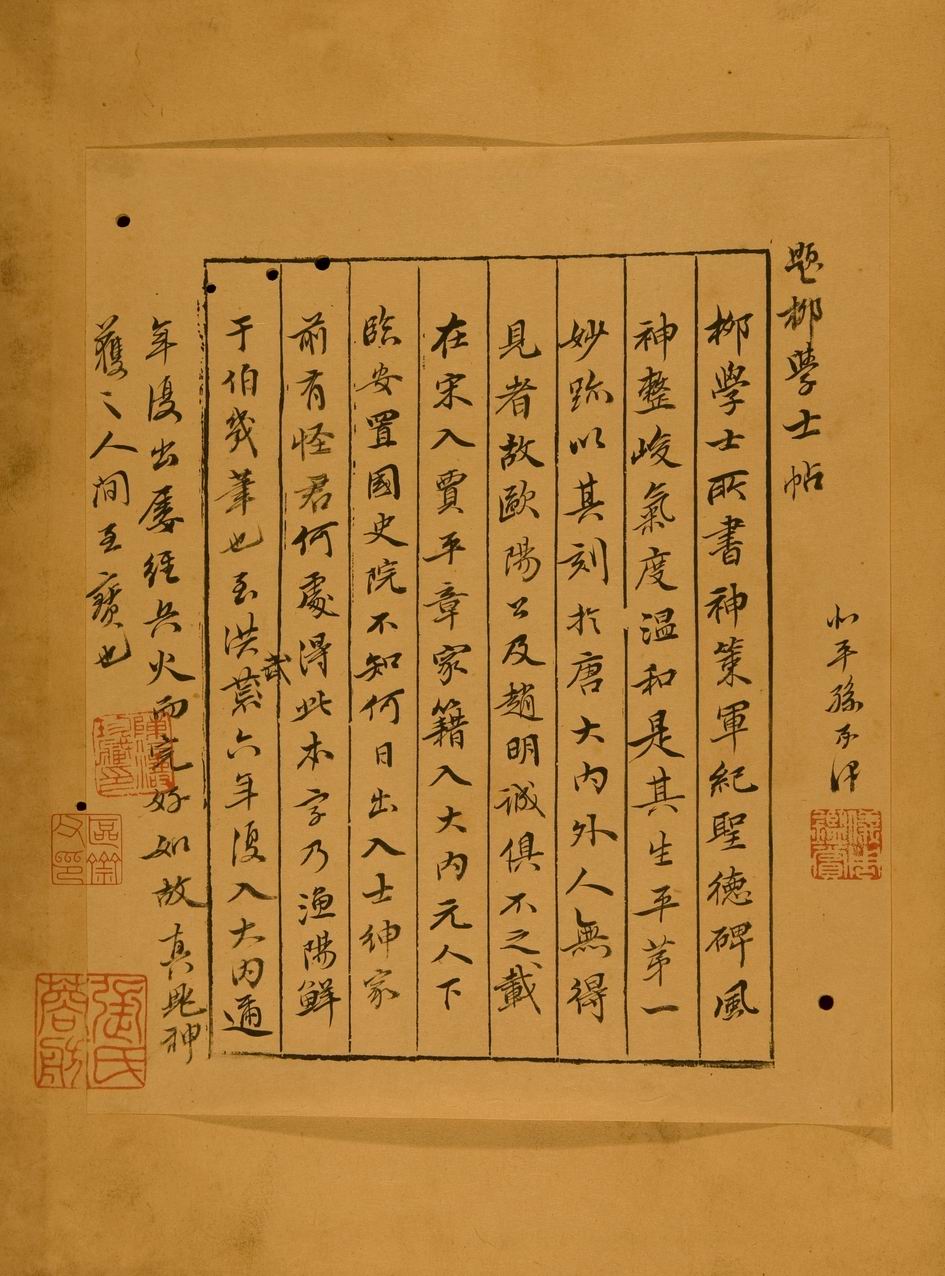 題柳學士帖
北平孫承澤
柳學士所書神策軍紀聖德碑風
神整峻氣度温和是其生平苐一
妙跡以其刻於唐大内外人無得
見者故歐陽公及趙明誠俱不之載
在宋入賈平章家籍入大内元人下
臨安置國史院不知何日出入士紳家
前有怪君何處得此本字乃漁陽鮮
于伯幾筆也至洪武六年復入大内邇
年復出屡經兵火而完好如故真毘神
護之人間至寶也
張氏